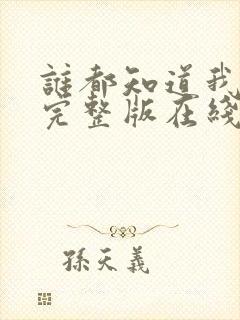 誰都知道我
完整版在綫
孫天義